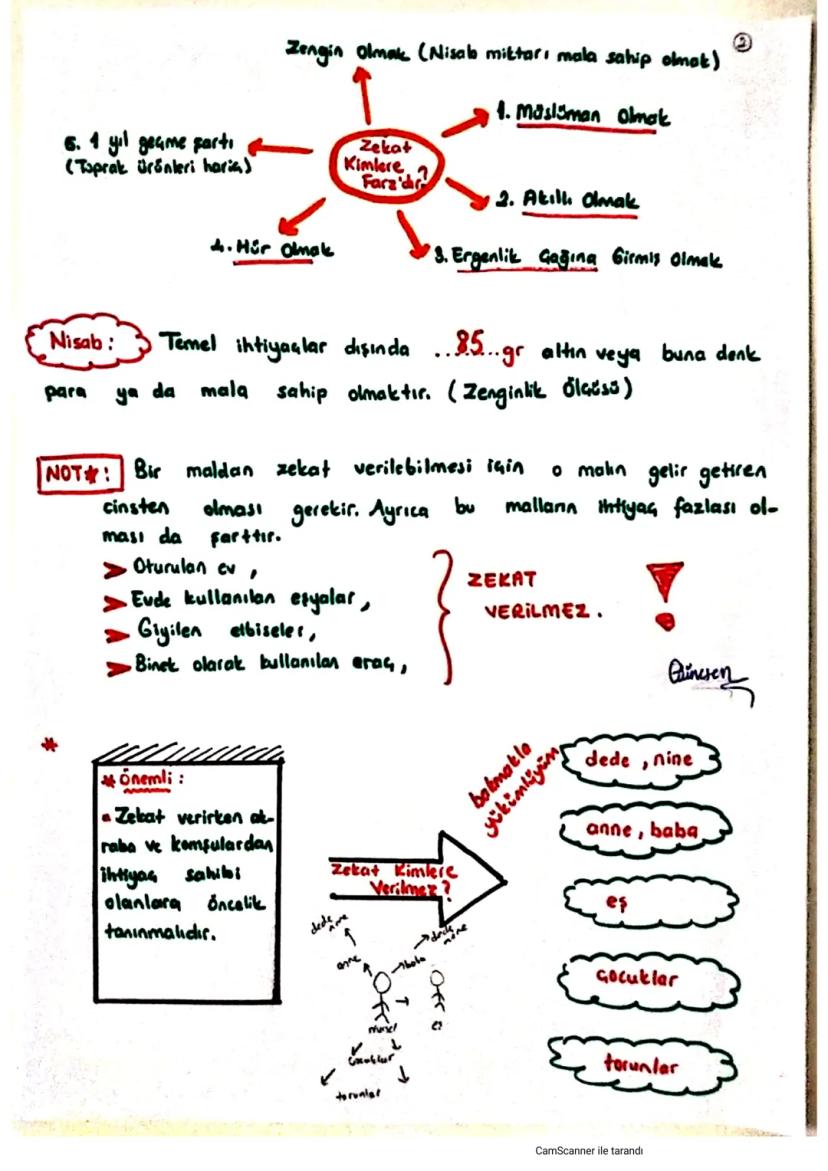 2
Zengin Olmak (Nisab miktarı mala sahip olmak)
1. Müslüman Olmak
5. 1 yıl geçme şartı
(Toprak ürünleri hariç)
Zekat
Kimlere
Farz'dır?
2. Akıllı Olmak
4. Hür Olmak
3. Ergenlik Çağına Girmiş Olmak
Nisab: Temel ihtiyaçlar dışında ..85..gr altın veya buna denk
para ya da mala sahip olmaktır. (Zenginlik Ölçüsü)
NOT*: Bir maldan zekat verilebilmesi için o malın gelir getiren
cinsten olması gerekir. Ayrıca bu malların ihtiyaç fazlası ol-
ması da şarttır.
➤ Oturulan ev,
➤ Evde kullanılan eşyalar,
➤ Giyilen elbiseler,
➤ Binek olarak kullanılan araç,
ZEKAT
VERİLMEZ. !
* Önemli:
• Zekat verirken ak-
raba ve komşulardan
ihtiyaç sahibi
olanlara öncelik
tanınmalıdır.
Zekat Kimlere
Verilmez?
bakmakla
yükümlüyüm
dede, nine
anne, baba
eş
çocuklar
torunlar
dede nine
dede nine
anne
baba
eş
çocuklar
torunlar
CamScanner ile tarandı